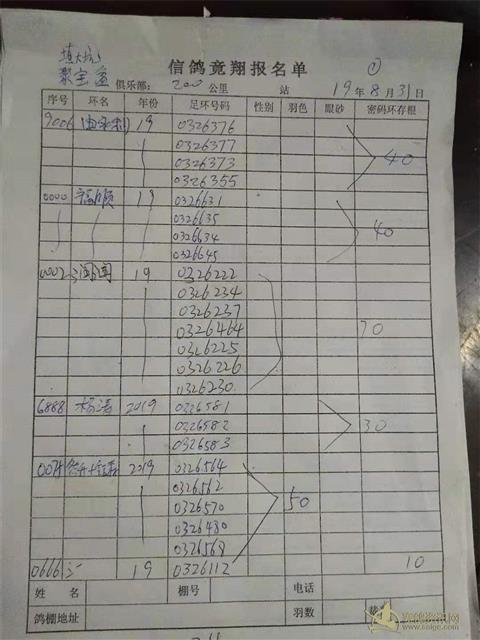 信鸽竟翔报名单 ①
聚宝盆 俱乐部: 200 公里 站 19年8月31日
序号 环名 年份 足环号码 性别 羽色 眼砂 密码环存根
9006 19 0326376
0326377
0326373 40
0326355
0000 19 0326631
0326635
0326634 40
0326645
0002 19 0326222
0326234
0326237
0326464 70
0326225
0326226
0326230
6888 杨涛 2019 0326581
0326582 30
0326583
2019 0326564
0326562
0326570 50
0326480
0326569
0666 19 0326112 10
姓名 棚号 电话
鸽棚地址 羽数